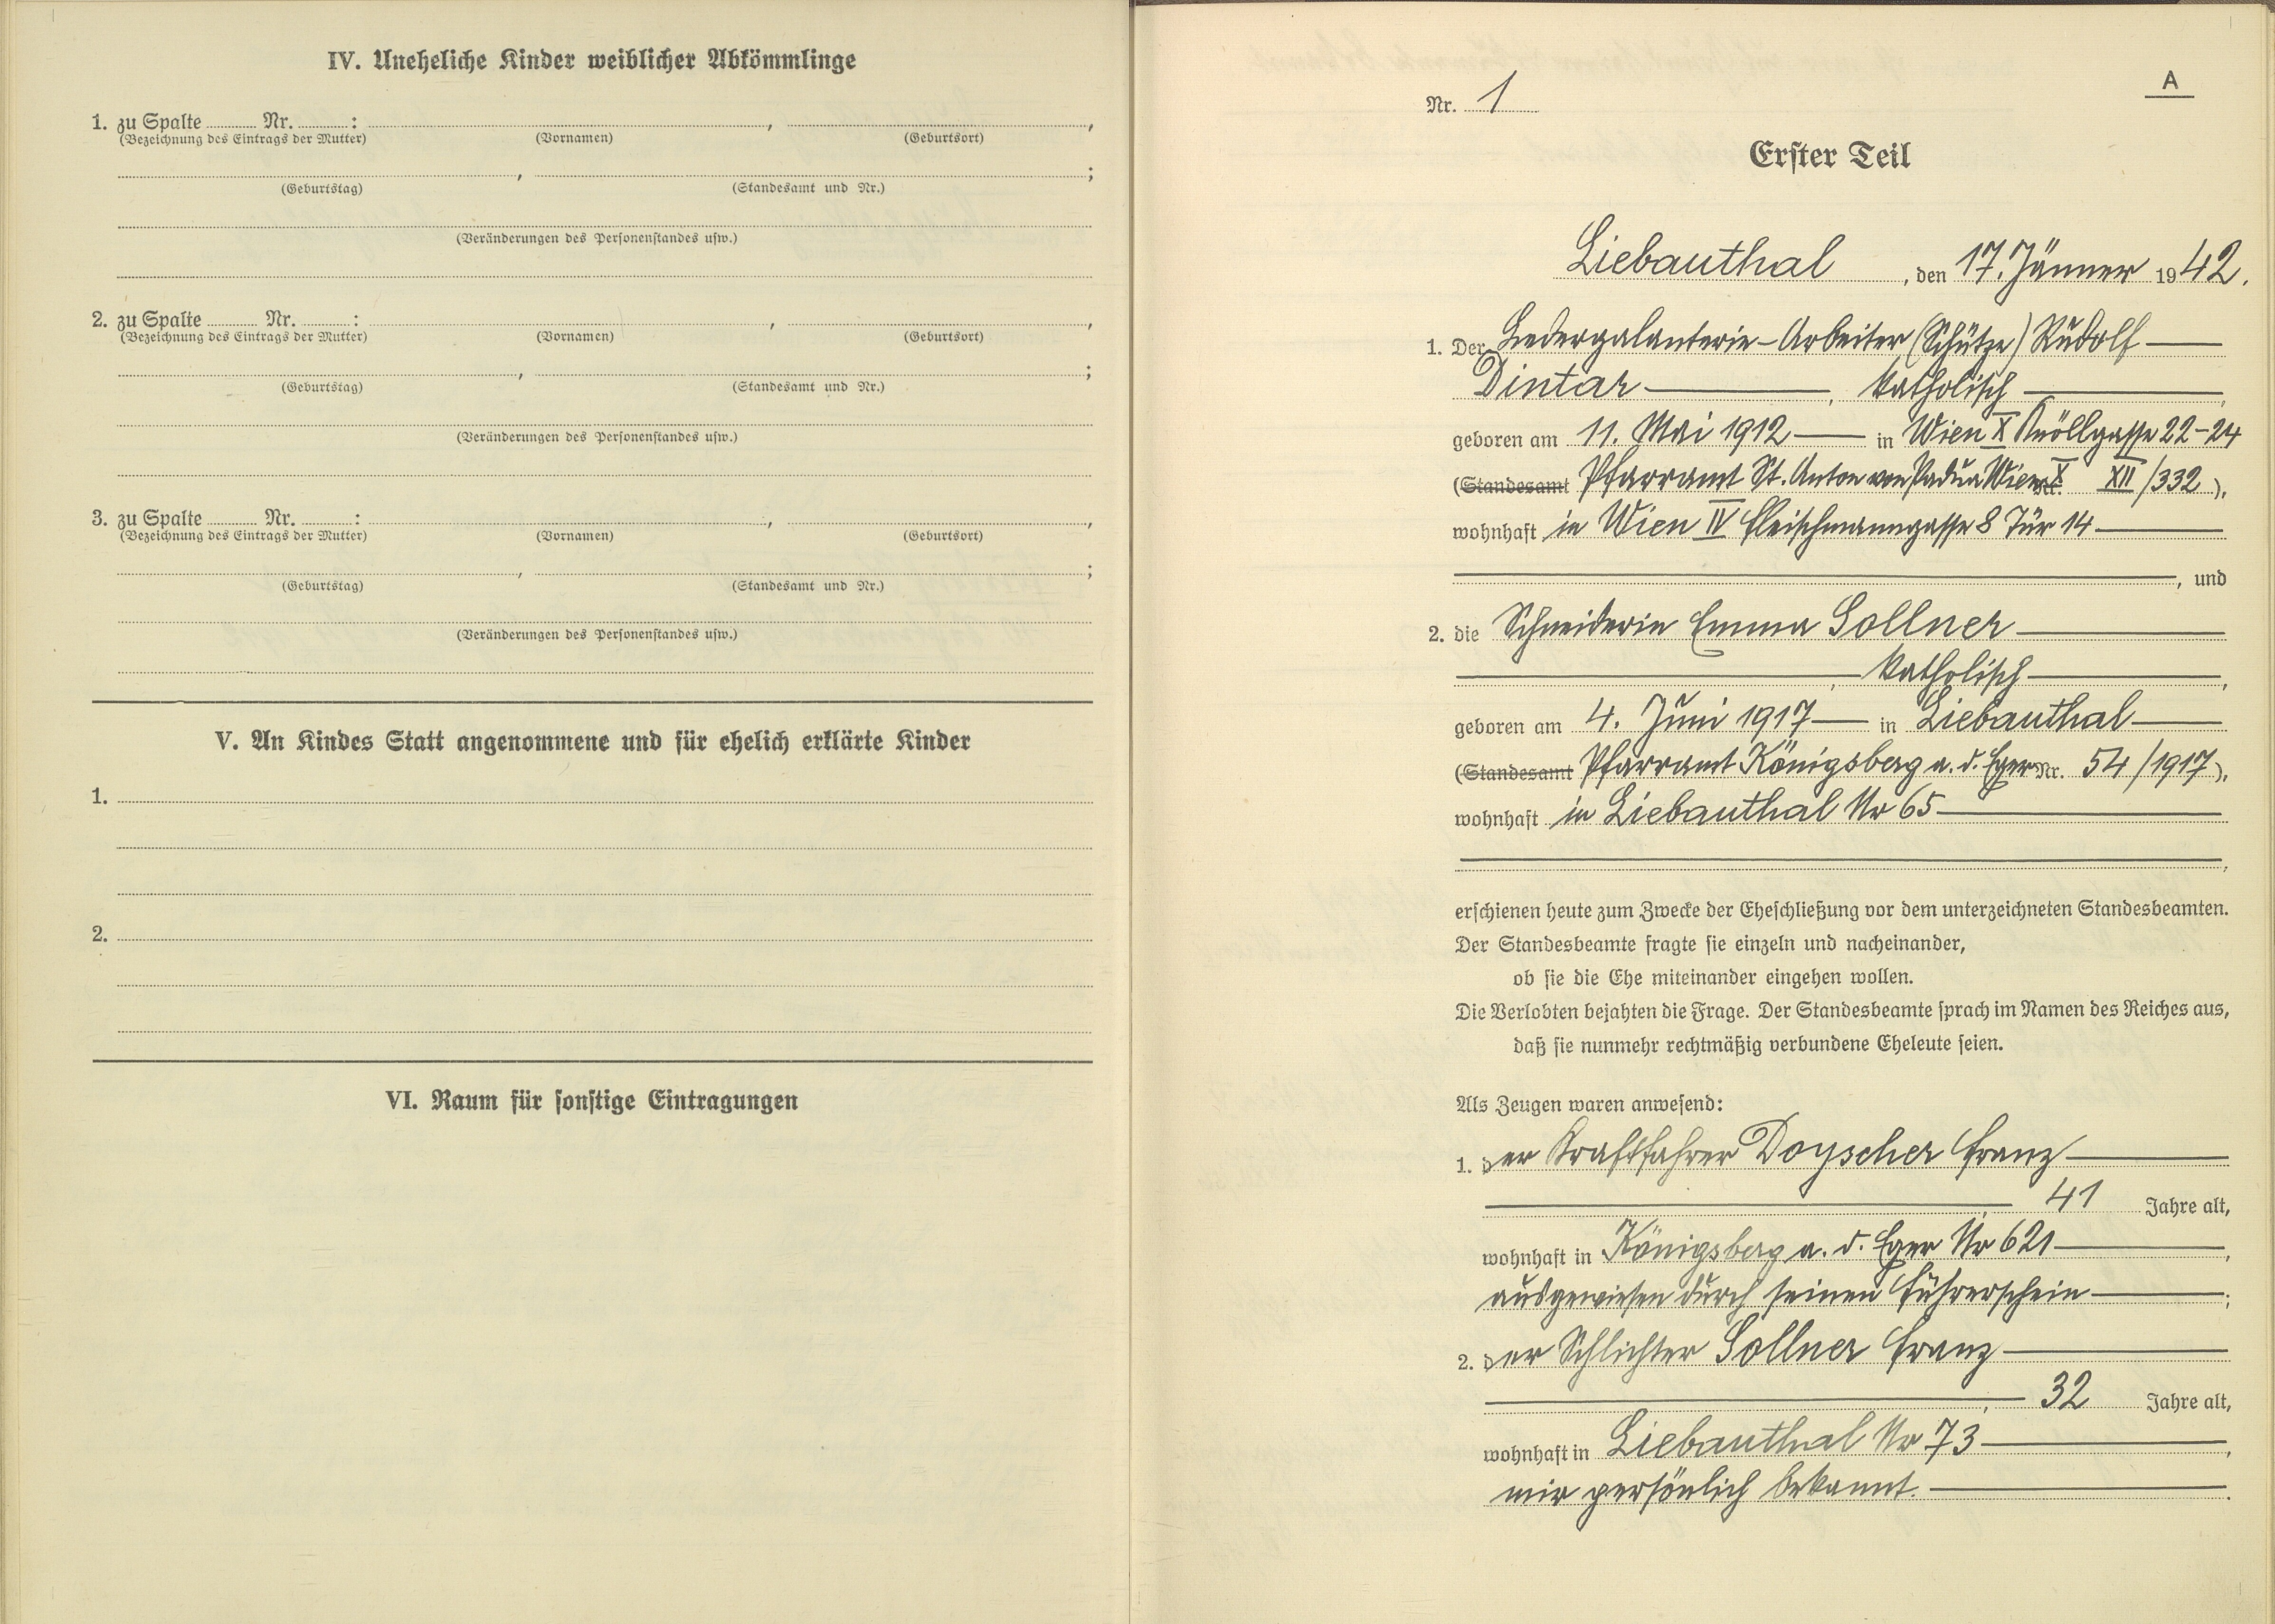 IV. Uneheliche Kinder weiblicher Abkömmlinge
1. zu Spalte ........ Nr. ........ : ........ , ........ ,
(Bezeichnung des Eintrags der Mutter) (Vornamen) (Geburtsort)
........ , ........ ;
(Geburtstag) (Standesamt und Nr.)
(Veränderungen des Personenstandes usw.)
2. zu Spalte ........ Nr. ........ : ........ , ........ ,
(Bezeichnung des Eintrags der Mutter) (Vornamen) (Geburtsort)
........ , ........ ;
(Geburtstag) (Standesamt und Nr.)
(Veränderungen des Personenstandes usw.)
3. zu Spalte ........ Nr. ........ : ........ , ........ ,
(Bezeichnung des Eintrags der Mutter) (Vornamen) (Geburtsort)
........ , ........ ;
(Geburtstag) (Standesamt und Nr.)
(Veränderungen des Personenstandes usw.)
V. An Kindes Statt angenommene und für ehelich erklärte Kinder
1.
2.
VI. Raum für sonstige Eintragungen
A
Nr. 1
Erster Teil
Liebauthal, den 17. Jänner 1942.
1. Der Ledergalanterie-Arbeiter (Schütze) Rudolf
Dintar, katholisch,
geboren am 11. Mai 1912 in Wien X Knöllgasse 22-24
(Standesamt Pfarramt St. Anton von Padua Wien X Nr. XII/332),
wohnhaft in Wien IV Fleischmanngasse 8 Tür 14
, und
2. die Schneiderin Emma Sollner
, katholisch,
geboren am 4. Juni 1917 in Liebauthal
(Standesamt Pfarramt Königsberg a. d. Eger Nr. 54/1917),
wohnhaft in Liebauthal Nr 65
,
erschienen heute zum Zwecke der Eheschließung vor dem unterzeichneten Standesbeamten.
Der Standesbeamte fragte sie einzeln und nacheinander,
ob sie die Ehe miteinander eingehen wollen.
Die Verlobten bejahten die Frage. Der Standesbeamte sprach im Namen des Reiches aus,
daß sie nunmehr rechtmäßig verbundene Eheleute seien.
Als Zeugen waren anwesend:
1. der Kraftfahrer Doyscher Franz
, 41 Jahre alt,
wohnhaft in Königsberg a. d. Eger Nr 621,
ausgewiesen durch seinen Führerschein;
2. der Schlichter Sollner Franz
, 32 Jahre alt,
wohnhaft in Liebauthal Nr 73,
mir persönlich bekannt.